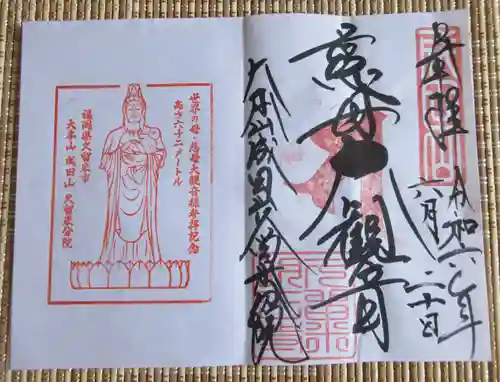 奉拝
令和六年
六月二十日
慈母大観音
大本山成田山久留米分院
世界の母・慈母大観音様参拝記念
高さ六十二メートル
福岡県久留米市
大本山 成田山 久留米分院